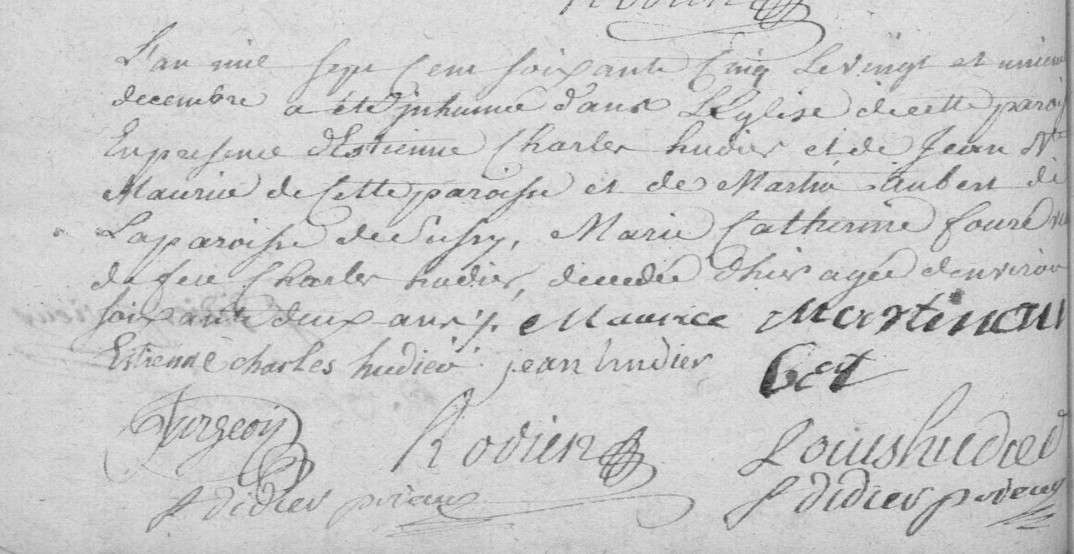 L'an mil sept Cent soixante Cinq Le vingt et unieme
decembre a été jnhumé dans L'Eglise de cette paroi
En presence d'Estienne Charles hudier et de Jean Nas
Maurice de Cette paroisse et de Martin aubert de
La paroisse de Sussy, Marie Catherine fouré
de feu Charles hudier, decedée d'hier agée d'environ
soixante deux ans /. Maurice Martin au
Estienne charles hudier jean hudier bert
Turgeon Rodier Louis hudier
S didier prieur S didier prieur